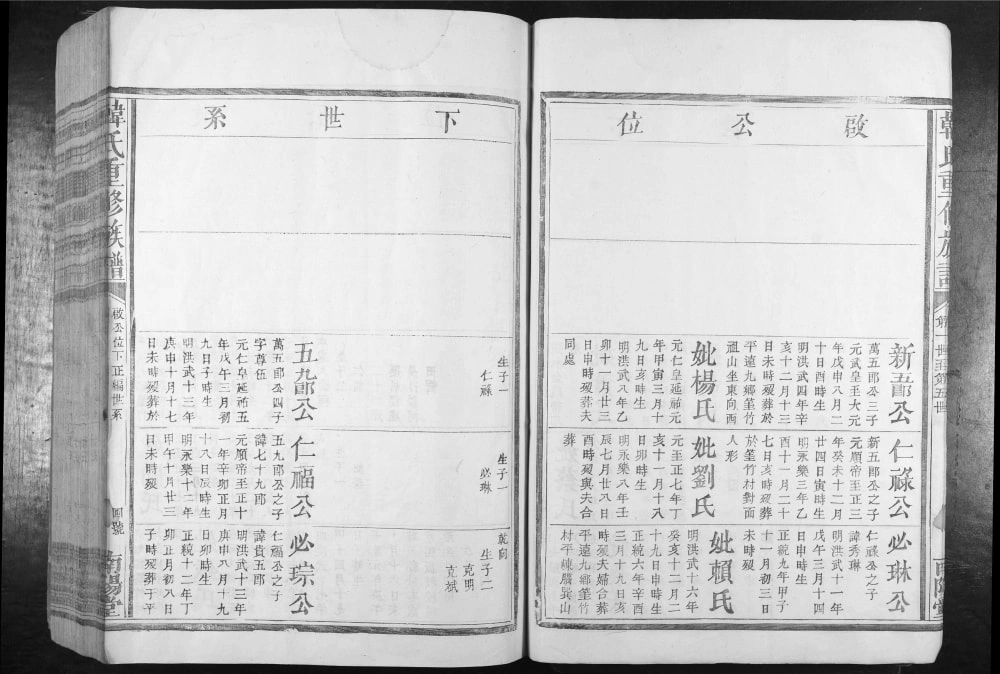 啟公位
新五郎公
萬五郎公三子
元武皇至大元
年戊申八月二
十日酉時生
明洪武四年辛
亥十二月十三
日未時歿葬於
平遠九鄉篁竹
溫山坐東向西
妣楊氏
元仁皇延祐元
年甲寅三月十
九日亥時生
明洪武八年乙
卯十一月廿三
日申時歿葬夫
同處
生子一
仁祿
仁祿公
新五郎公之子
元順帝至正三
年癸未十二月
廿四日寅時生
明永樂三年乙
酉十一月二十
七日亥時歿葬
於篁竹村對面
人形
妣劉氏
元至正七年丁
亥十一月十八
日卯時生
明永樂八年壬
辰七月廿八日
酉時歿與夫合
葬
生子一
必琳
必琳公
仁祿公之子
諱秀琳
明洪武十一年
戊午三月十四
日申時生
正統九年甲子
十一月初三日
未時歿
妣賴氏
明洪武十六年
癸亥十二月二
十九日申時生
正統六年辛酉
三月十九日亥
時歿夫婦合葬
平遠九鄉篁竹
村平崠墻巽山
乾向
生子二
克明
克斌
下世系
五九郎公
萬五郎公四子
字尊伍
元仁皇延祐五
年戊午三月初
九日子時生
明洪武十三年
庚申十月十七
日未時歿葬於
仁福公
五九郎公之子
諱七十九郎
元順帝至正十
一年辛卯正月
十八日辰時生
明永樂十二年
甲午十月廿三
日未時歿
必琮公
仁福公之子
諱貴五郎
明洪武十三年
庚申八月十九
日卯時生
正統十二年丁
卯正月初八日
子時歿葬于平
韓氏重修族譜
啟公位下正編世系
南陽堂